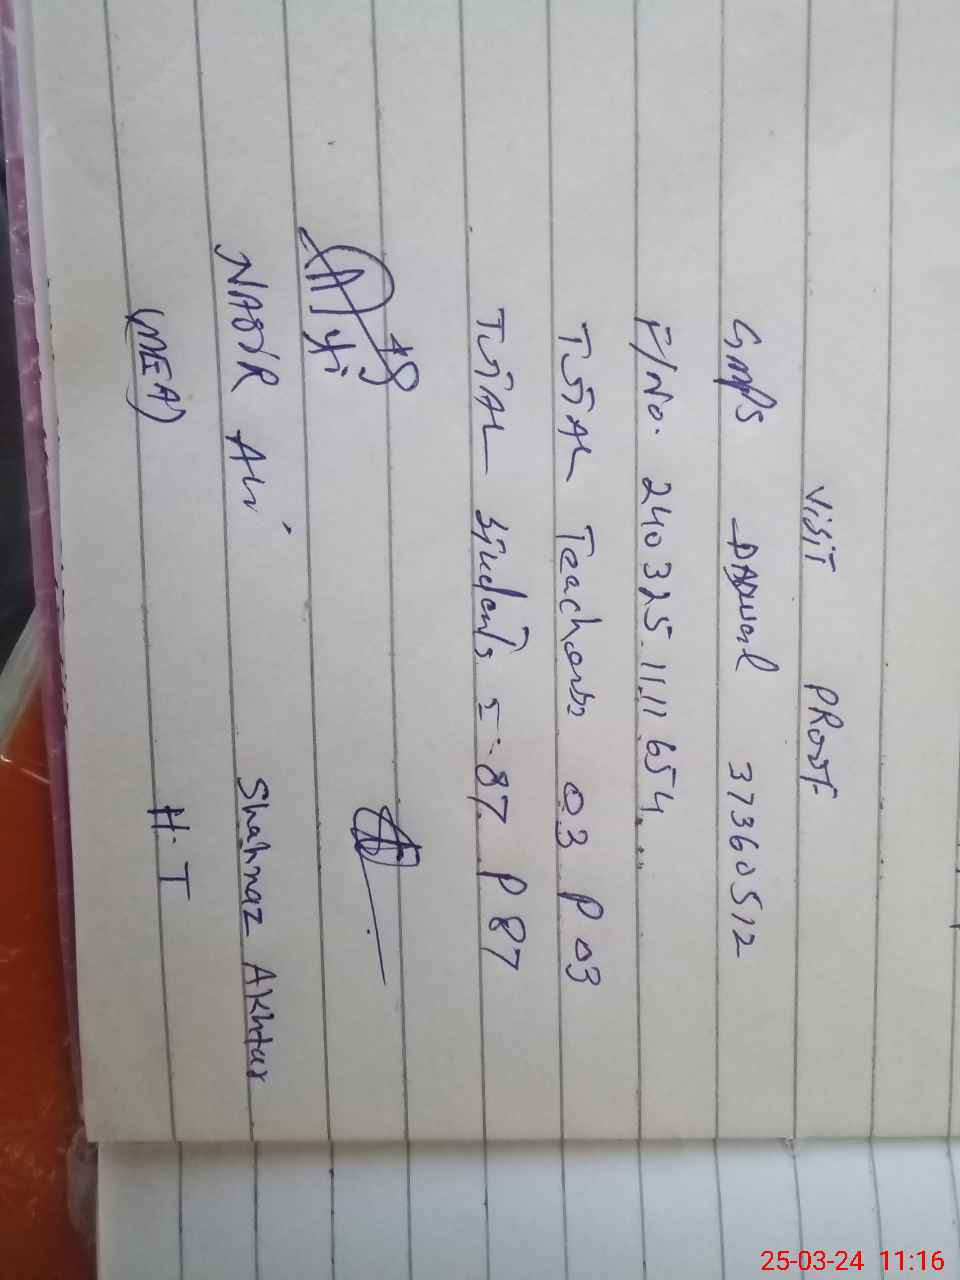 VISIT PROOF
GMPS 37360512
F/No. 240325.1111654...
TOTAL Teachers 03 P 03
TOTAL Students = 87 P 87
NASIR Ali Shahnaz Akhtar
(MEA) H.T
25-03-24 11:16